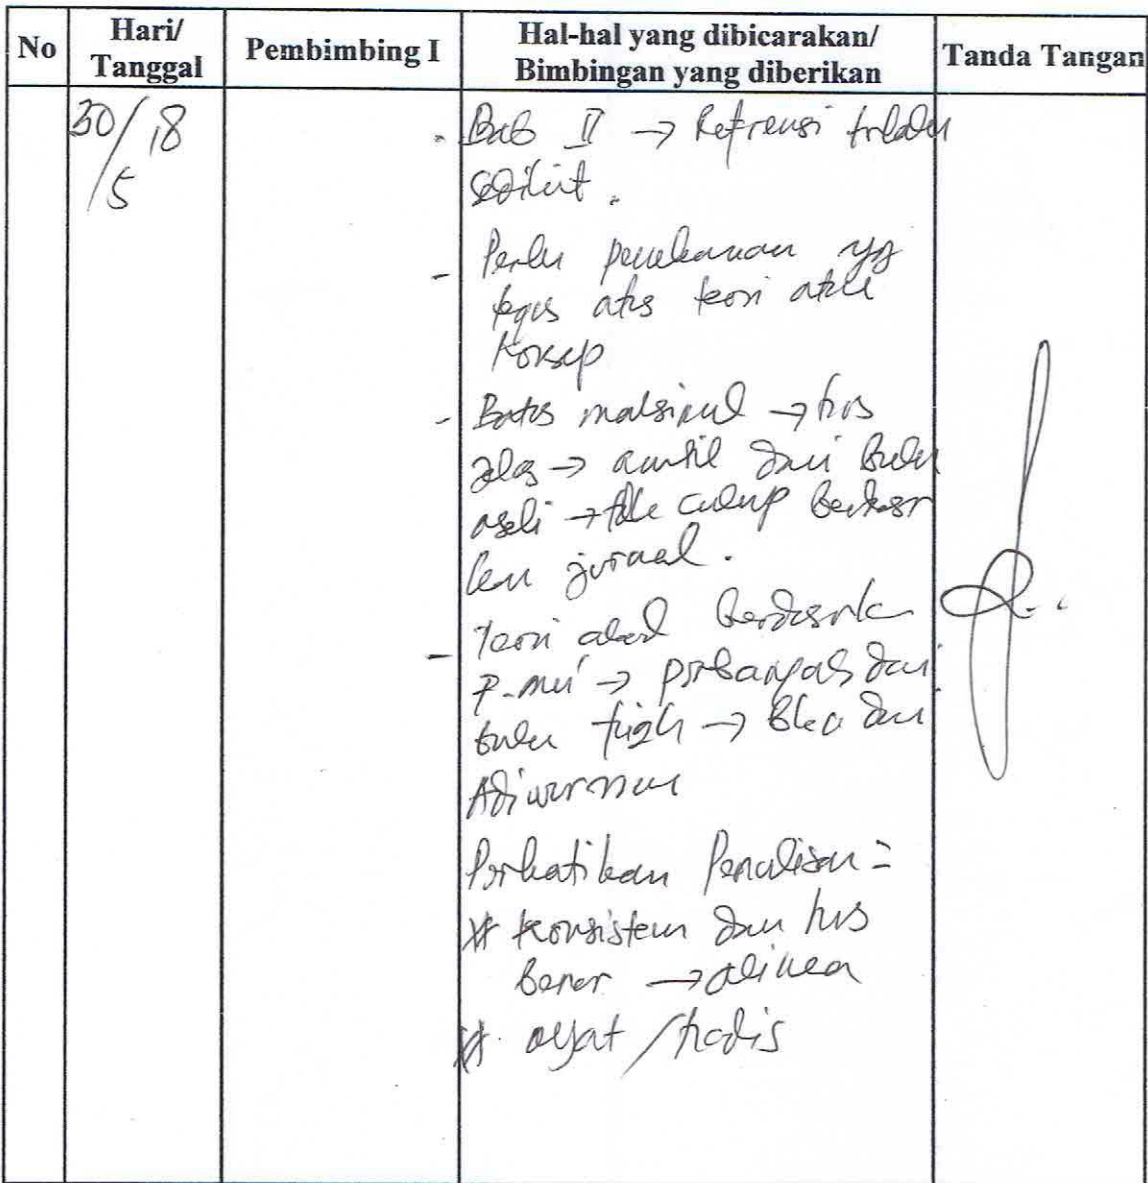 No
Hari/
Tanggal
Pembimbing I
Hal-hal yang dibicarakan/
Bimbingan yang diberikan
Tanda Tangan
30/5 18
- Bab II → Refrensi trlalu
sedikit.
- Perlu penekanan yg
tegas atas teori atau
Konsep
- Batas maksimal → hrs
jelas → ambil dari Buku
asli → tdk cukup Berdasr
kan jurnal.
- Teori akad Berdasrk
→ perbanyak dari
buku fiqh → dan
Adiwarman
Perhatikan Penulisan =
# Konsisten dan hrs
Bener → alinea
# ayat / hadis